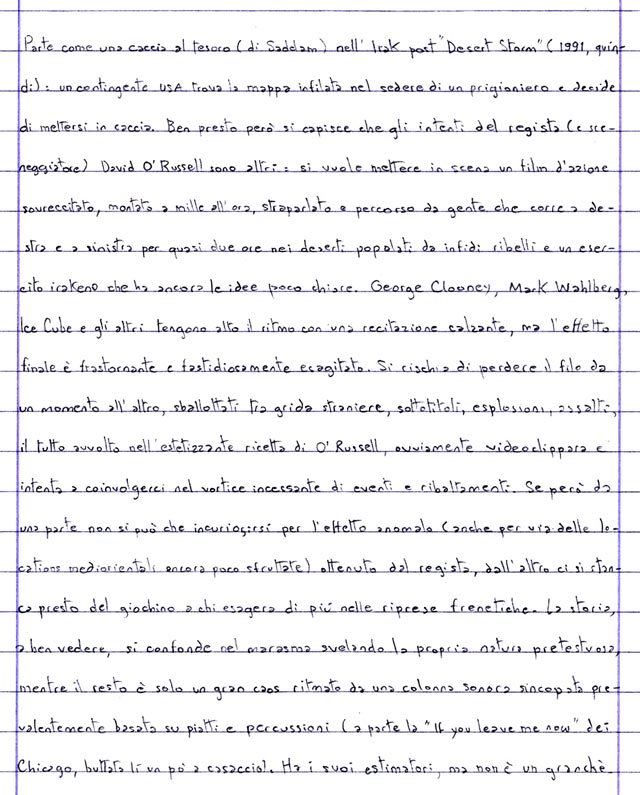 Parte come una caccia al tesoro (di Saddam) nell'Irak post "Desert Storm" (1991, quin-
di): un contingente USA trova la mappa infilata nel sedere di un prigioniero e decide
di mettersi in caccia. Ben presto però si capisce che gli intenti del regista (e sce-
neggiatore) David O'Russell sono altri: si vuole mettere in scena un film d'azione
sovreccitato, montato a mille all'ora, straparlato e percorso da gente che corre a de-
stra e a sinistra per quasi due ore nei deserti popolati da infidi ribelli e un eser-
cito irakeno che ha ancora le idee poco chiare. George Clooney, Mark Wahlberg,
Ice Cube e gli altri tengono alto il ritmo con una recitazione calzante, ma l'effetto
finale è frastornante e fastidiosamente esagitato. Si rischia di perdere il filo da
un momento all'altro, sballottati tra grida straniere, sottotitoli, esplosioni, assalti,
il tutto avvolto nell'estetizzante ricetta di O'Russell, ovviamente videoclippara e
intenta a coinvolgerci nel vortice incessante di eventi e ribaltamenti. Se però da
una parte non si può che incuriosirsi per l'effetto anomalo (anche per via delle lo-
cations mediorientali ancora poco sfruttate) ottenuto dal regista, dall'altro ci si stan-
ca presto del giochino a chi esagera di più nelle riprese frenetiche. La storia,
a ben vedere, si confonde nel marasma svelando la propria natura pretestuosa,
mentre il resto è solo un gran caos ritmato da una colonna sonora sincopata pre-
valentemente basata su piatti e percussioni (a parte la "If you leave me now" dei
Chicago, buttata lì un pò a casaccio). Ha i suoi estimatori, ma non è un granchè.